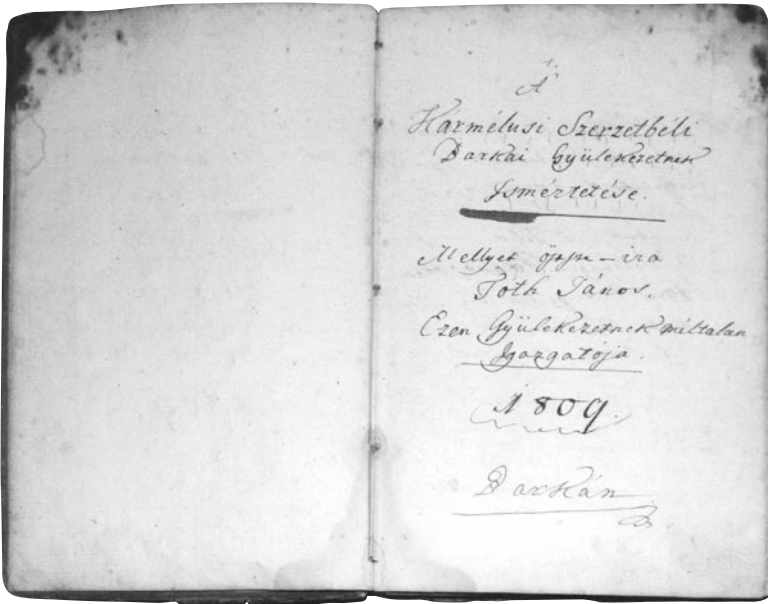 A'
Kármélusi Szerzetbéli
Darkai Gyülekezetnek
Ismértetése.
Mellyet öszve-ira
Tóth János.
Ezen Gyülekezetnek méltatlan
Igazgatója.
1809.
Darkán